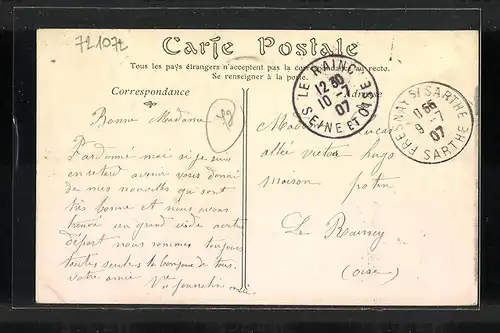 72107t
Carte Postale
Tous les pays étrangers n'acceptent pas la correspondance au recto.
Se renseigner à la poste.
Correspondance
Adresse
LE RAINCY
12 30
10 -7
07
SEINE ET OISE
FRESNAY S/ SARTHE
9 -7
07
SARTHE
Bonne Madame
Pardonné moi si je suis
en retard avenir vous donné
de mes nouvelles qui sont
très bonne et nous avons
trouvé un grand vide votre
départ nous sommes toujours
toutes seules la bonjour de tous
votre amie
Lucas
allée victor hugo
maison potin
Le Raincy
(oise)